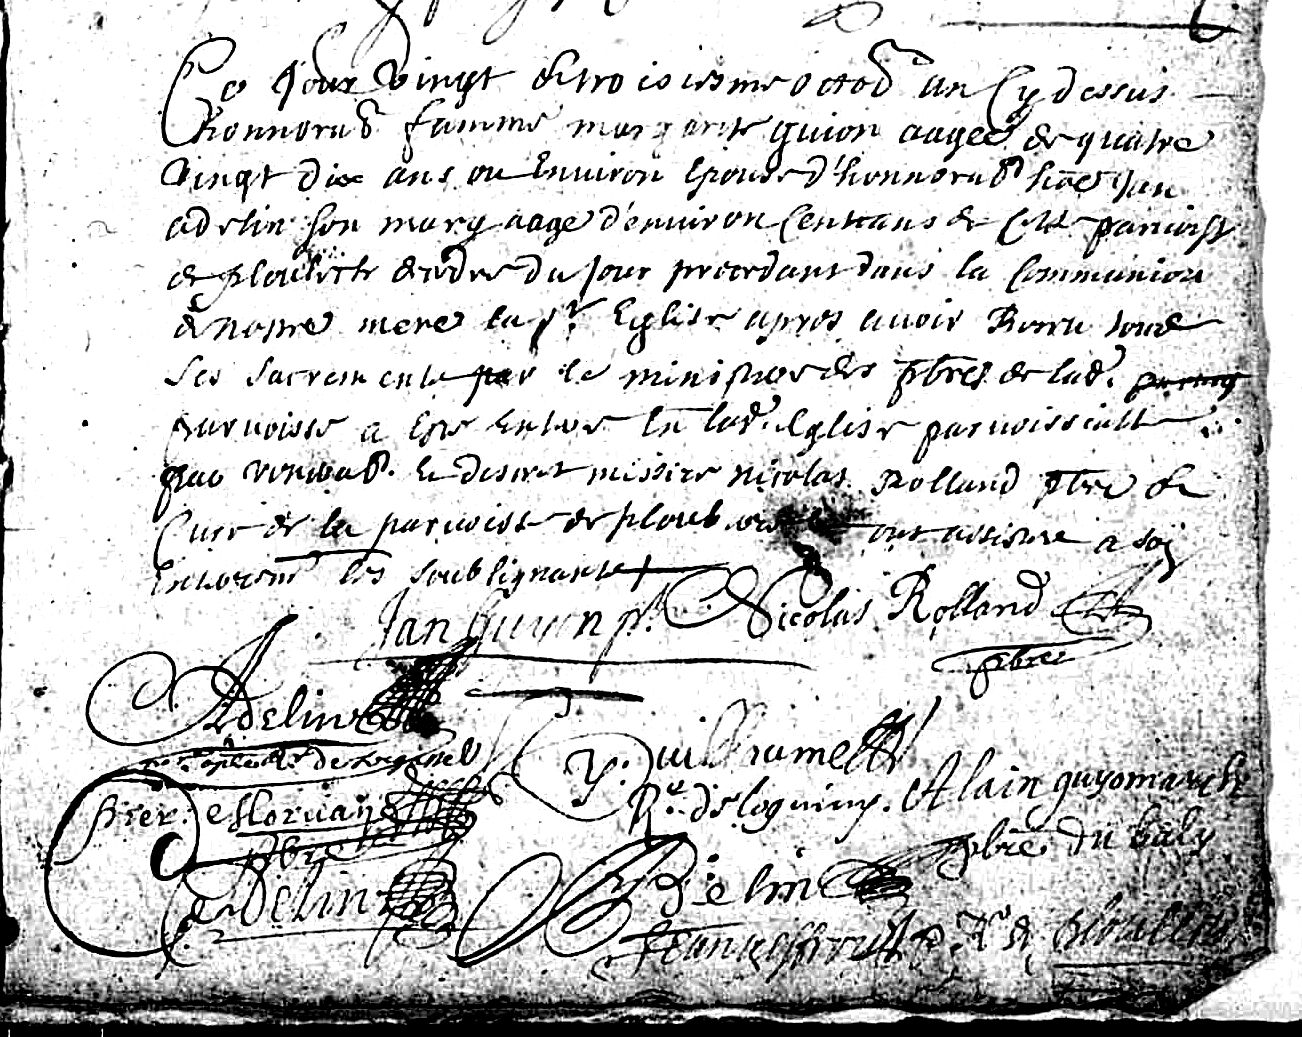 Ce jour vingt et troisiesme octob an cy dessus
honnorab famme margarite guion aagee de quatre
vingt dix ans ou environ Espouse d'honnorab ho͞e Jan
adelin son mary aage d'environ cent ans de cette parroisse
de ploulech decedee du jour precedant dans la communion
de nostre mere la ste Eglise apres avoir Receu tous
ses sacrements par le ministere des pb͞res de lad.
parroisse a este enteree En lad. eglise parroissialle
par venerab. et discret missire nicolas Rolland pb͞re et
Curé de la parroisse de ont assisté a son
enterem les soubsignants
Jan Guyon pr. Nicolas Rolland
pb͞re
Adelin
Y. Guillaume
Rr. de loguivy. Alain guyomarch
pb͞re du baly
pbre
Adelin
Adelin
Rr de ploulech